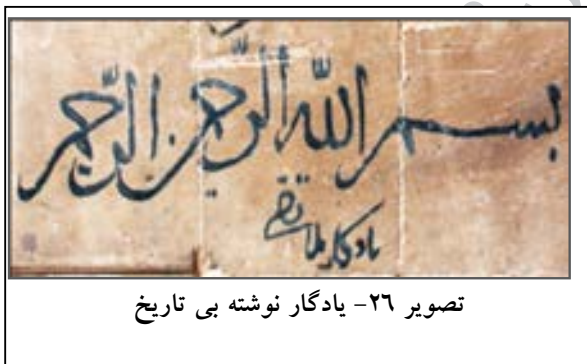 بسم الله الرحمن الرحیم
یادگار ملا تقی
تصویر ۲۶- یادگار نوشته بی تاریخ